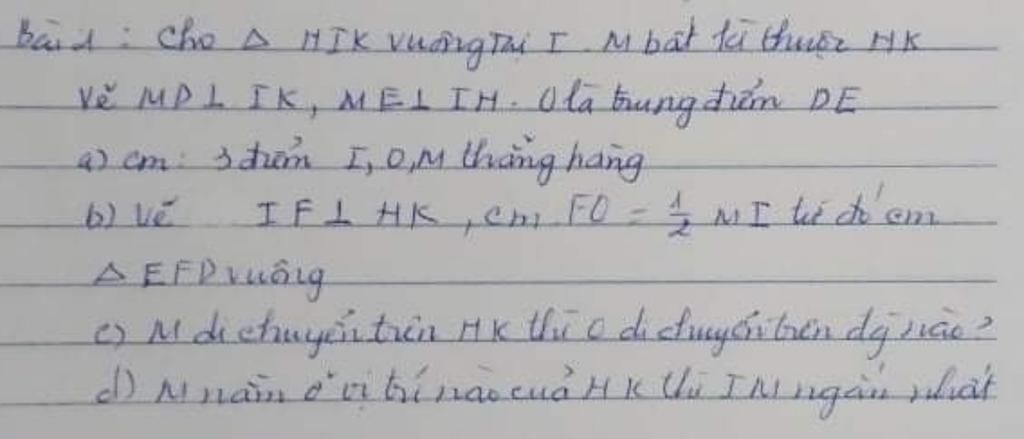 Bài 1 : Cho △ HIK vuông tại I . M bất kì thuộc HK
Vẽ MD⊥ IK, ME⊥ IH. O là trung điểm DE
a) cm: 3 điểm I, O, M thẳng hàng
b) Vẽ IF⊥ HK, cm FO = 1/2 MI từ đó cm
△ EFD vuông
c) M di chuyển trên HK thì O di chuyển trên đg nào?
d) M nằm ở vị trí nào của HK thì IM ngắn nhất